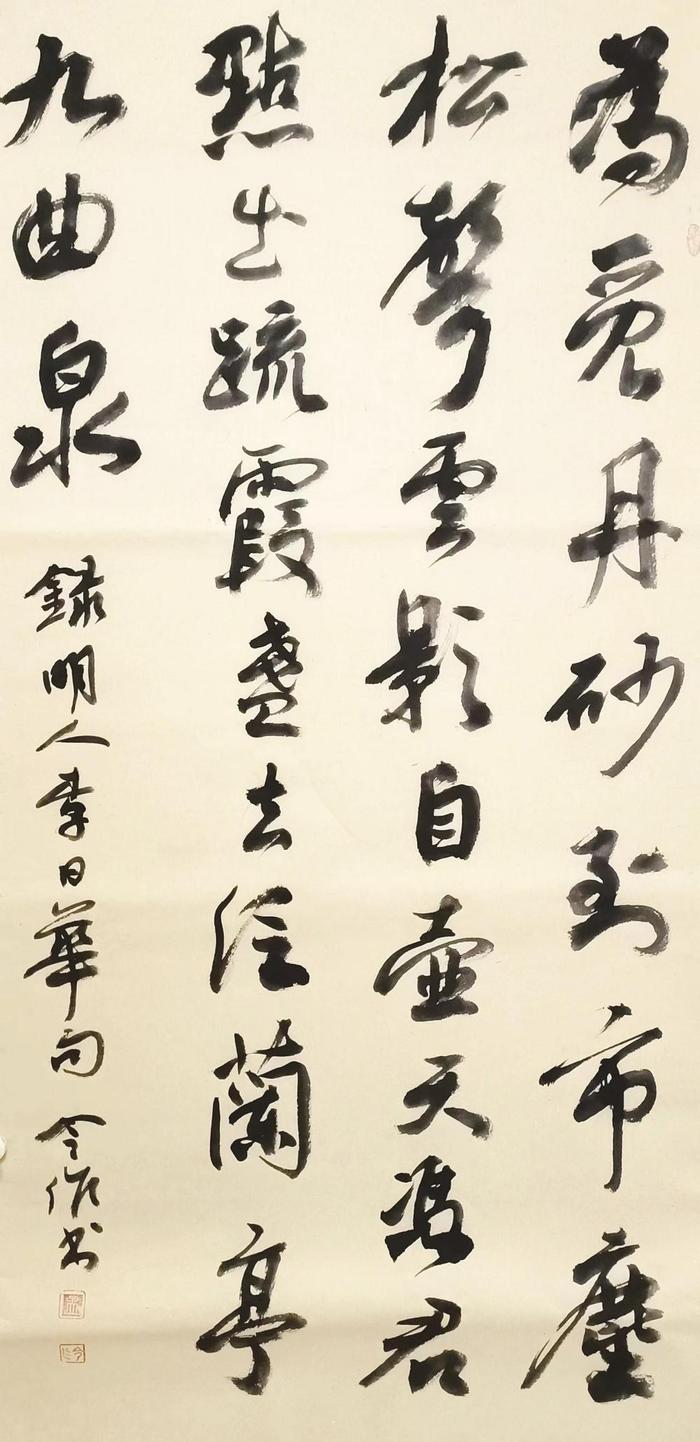 為覓丹砂到市廛
松聲雲影自壺天憑君
點出琉霞盞去泛蘭亭
九曲泉
錄明人李日華句 令作書